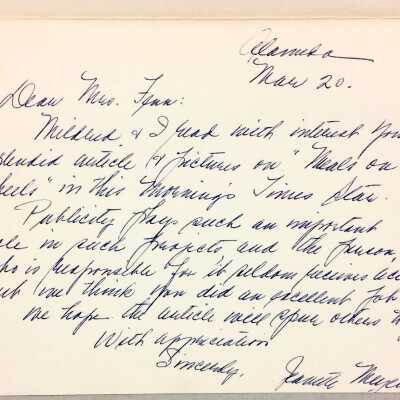 Alameda
Mar 20.
Dear Mrs. Fynn:
Mildred & I read with interest your
splendid article & pictures on "Meals on
heels" in this morning's Times Star.
Publicity plays such an important
ole in such projects and the person
ho is responsible for it seldom receives
but we think you did an excellent job
we hope the article will spur others
With appreciation
Sincerely,
Janette